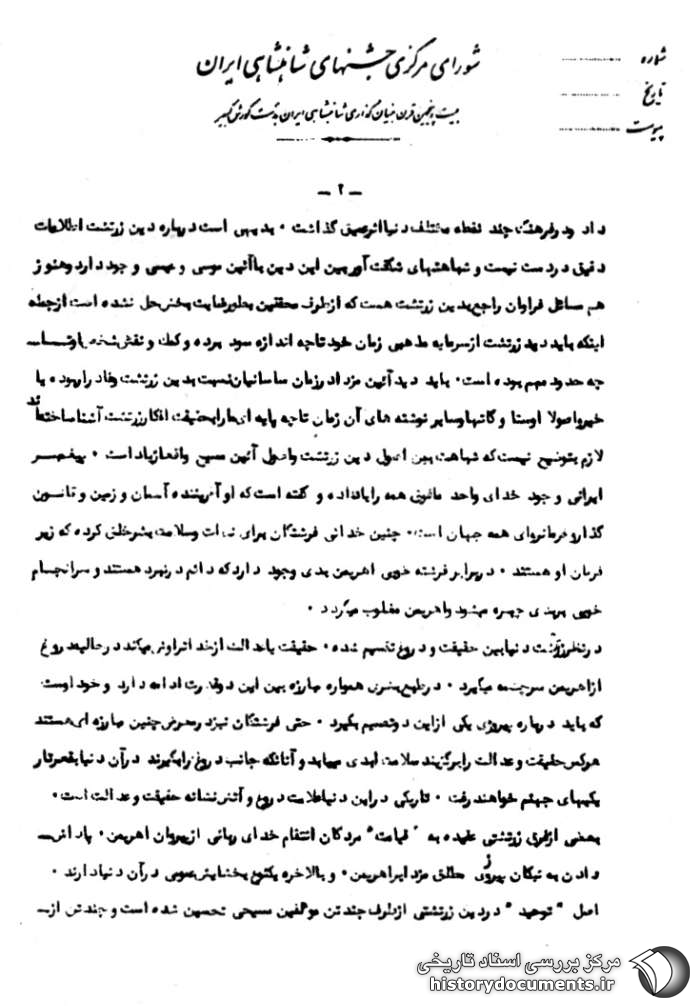 شماره
تاریخ
پیوست
شورای مرکزی جشنهای شاهنشاهی ایران
بیست و پنجمین قرن بنیان گذاری شاهنشاهی ایران بدست کورش کبیر
ـ ۲ ـ
داد ودرفرهنگ چند نقطه مختلف دنیااثرعمیق گذاشت ۰ بدیهی است درباره دین زرتشت اطلاعات
دقیق دردست نیست و شباهتهای شگفت آوربین این دین باآئین موسی و عیسی وجود دارد وهنوز
هم مسائل فراوان راجع بدین زرتشت هست که ازطرف محققین بطوررضایت بخش حل نشده است ازجمله
اینکه باید دید زرتشت ازسرمایه مذهبی زمان خود تاچه اندازه سود برده وکمک ونقش شخص
چه حدود مهم بوده است۰ باید دید آئین مزدا درزمان ساسانیان نسبت بدین زرتشت وفادار بوده یا
خیرواصولا اوستا و گاتهاوسایر نوشته های آن زمان تاچه پایه ای مارابحقیقت افکارزرتشت آشناساخته اند
لازم بتوضیح نیست که شباهت بین اصول دین زرتشت واصول آئین مسیح واقعازیاد است ۰ پیغمبر
ایرانی وجود خدای واحد مافوق همه و گفته است که او آفریننده آسمان و زمین و قانون
گذاروفرمانروای همه جهان است۰ چنین خدائی فرشتگان برای نجات وسلامت بشرخلق کرده که زیر
فرمان او هستند ۰ دربرابر فرشته خوبی اهریمن بدی وجود داردکه دائم درنبرد هستند و سرانجام
خوبی بربدی چیره میشود واهریمن مغلوب میگردد ۰
درنظرزرتشت دنیابین حقیقت و دروغ تقسیم شده ۰ حقیقت یاعدالت ازخدا تراوش میکند درحالیکه دروغ
ازاهریمن سرچشمه میگیرد ۰ درطبع بشری همواره مبارزه بین این دوقدرت ادامه دارد و خود اوست
که باید درباره پیروزی یکی ازاین دوتصمیم بگیرد ۰ حتی فرشتگان نیزدرمعرض چنین مبارزه ای هستند
هرکس حقیقت وعدالت رابرگزیند سلامت ابدی مییابد و آنانکه جانب دروغ رابگیرند درآن دنیابقعرتار
یکیهای جهنم خواهند رفت ۰ تاریکی دراین دنیاعلامت دروغ و آتش نشانه حقیقت وعدالت است۰
بعضی ازفرق زرتشتی عقیده به "قیامت" مردگان انتقام خدای ربانی ازپیروان اهریمن۰ پاداش
دادن به نیکان پیروزی مطلق مزدا براهریمن۰ و بالاخره یکنوع بخشایش عمومی درآن دنیا دارند ۰
اصل "توحید" دردین زرتشتی ازطرف چندتن مولفین مسیحی تحسین شده است و چندتن از
مرکز بررسی اسناد تاریخی
historydocuments.ir